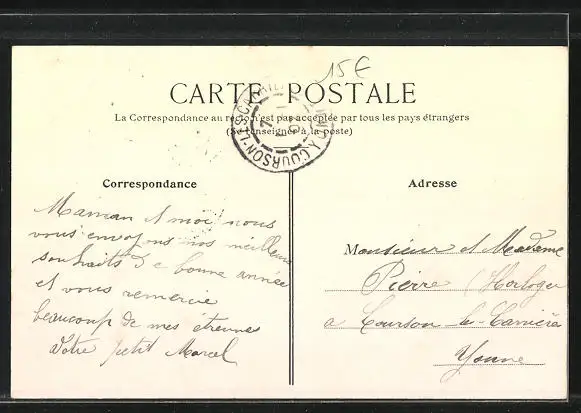 15 €
CARTE POSTALE
La Correspondance au recto n'est pas acceptée par tous les pays étrangers
(Se renseigner à la poste)
COURSON-L-S-CAR
Correspondance
Adresse
Maman et moi nous
vous envoyons nos meilleurs
souhaits de bonne année
et vous remercie
beaucoup de mes étrennes
Votre petit Marcel
Monsieur et Madame
Pierre (Horloger
a Courson-le-Carrière
Yonne